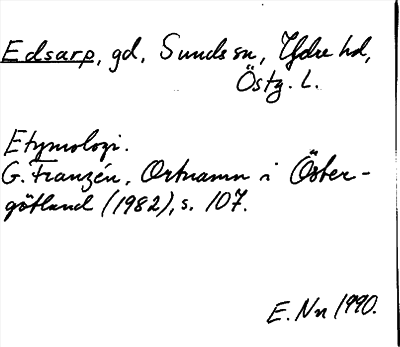 Edsarp, gd, Sunds sn, Ydre hd,
Östg. L.
Etymologi.
G. Franzén, Ortnamn i Öster-
götland (1982), s. 107.
E. Nn 1990.